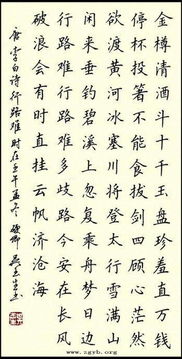 金樽清酒斗十千玉盘珍羞直万钱
停杯投箸不能食拔剑四顾心茫然
欲渡黄河冰塞川将登太行雪满山
闲来垂钓碧溪上忽复乘舟梦日边
行路难行路难多歧路今安在长风
破浪会有时直挂云帆济沧海
唐李白诗行路难时在壬午孟冬
www.zgyb.org